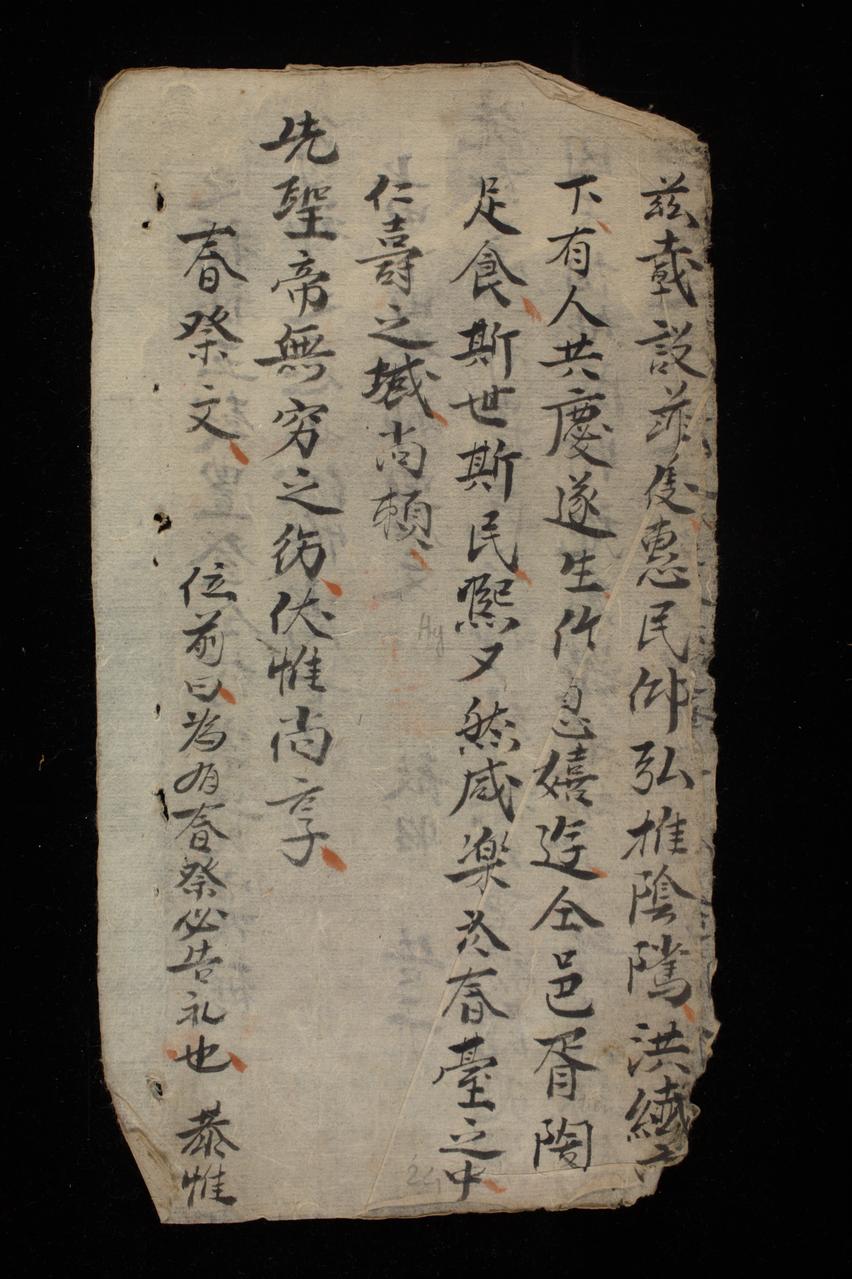 茲載設 隻惠民仰弘推陰隲洪
下有人共慶遂生作息嬉 仝邑胥陶
足食斯世斯民熈夕然咸楽於春臺之中
仁壽之域尚頼
先聖帝無穷之 伏惟尚享
春祭文 位前曰為有春祭必告礼也 恭惟